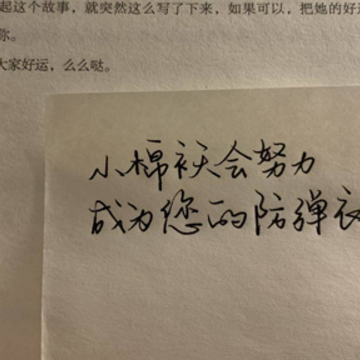 起这个故事，就突然这么写了下来，如果可以，把她的好运
你。
大家好运，么么哒。
小棉袄会努力
成为您的防弹衣